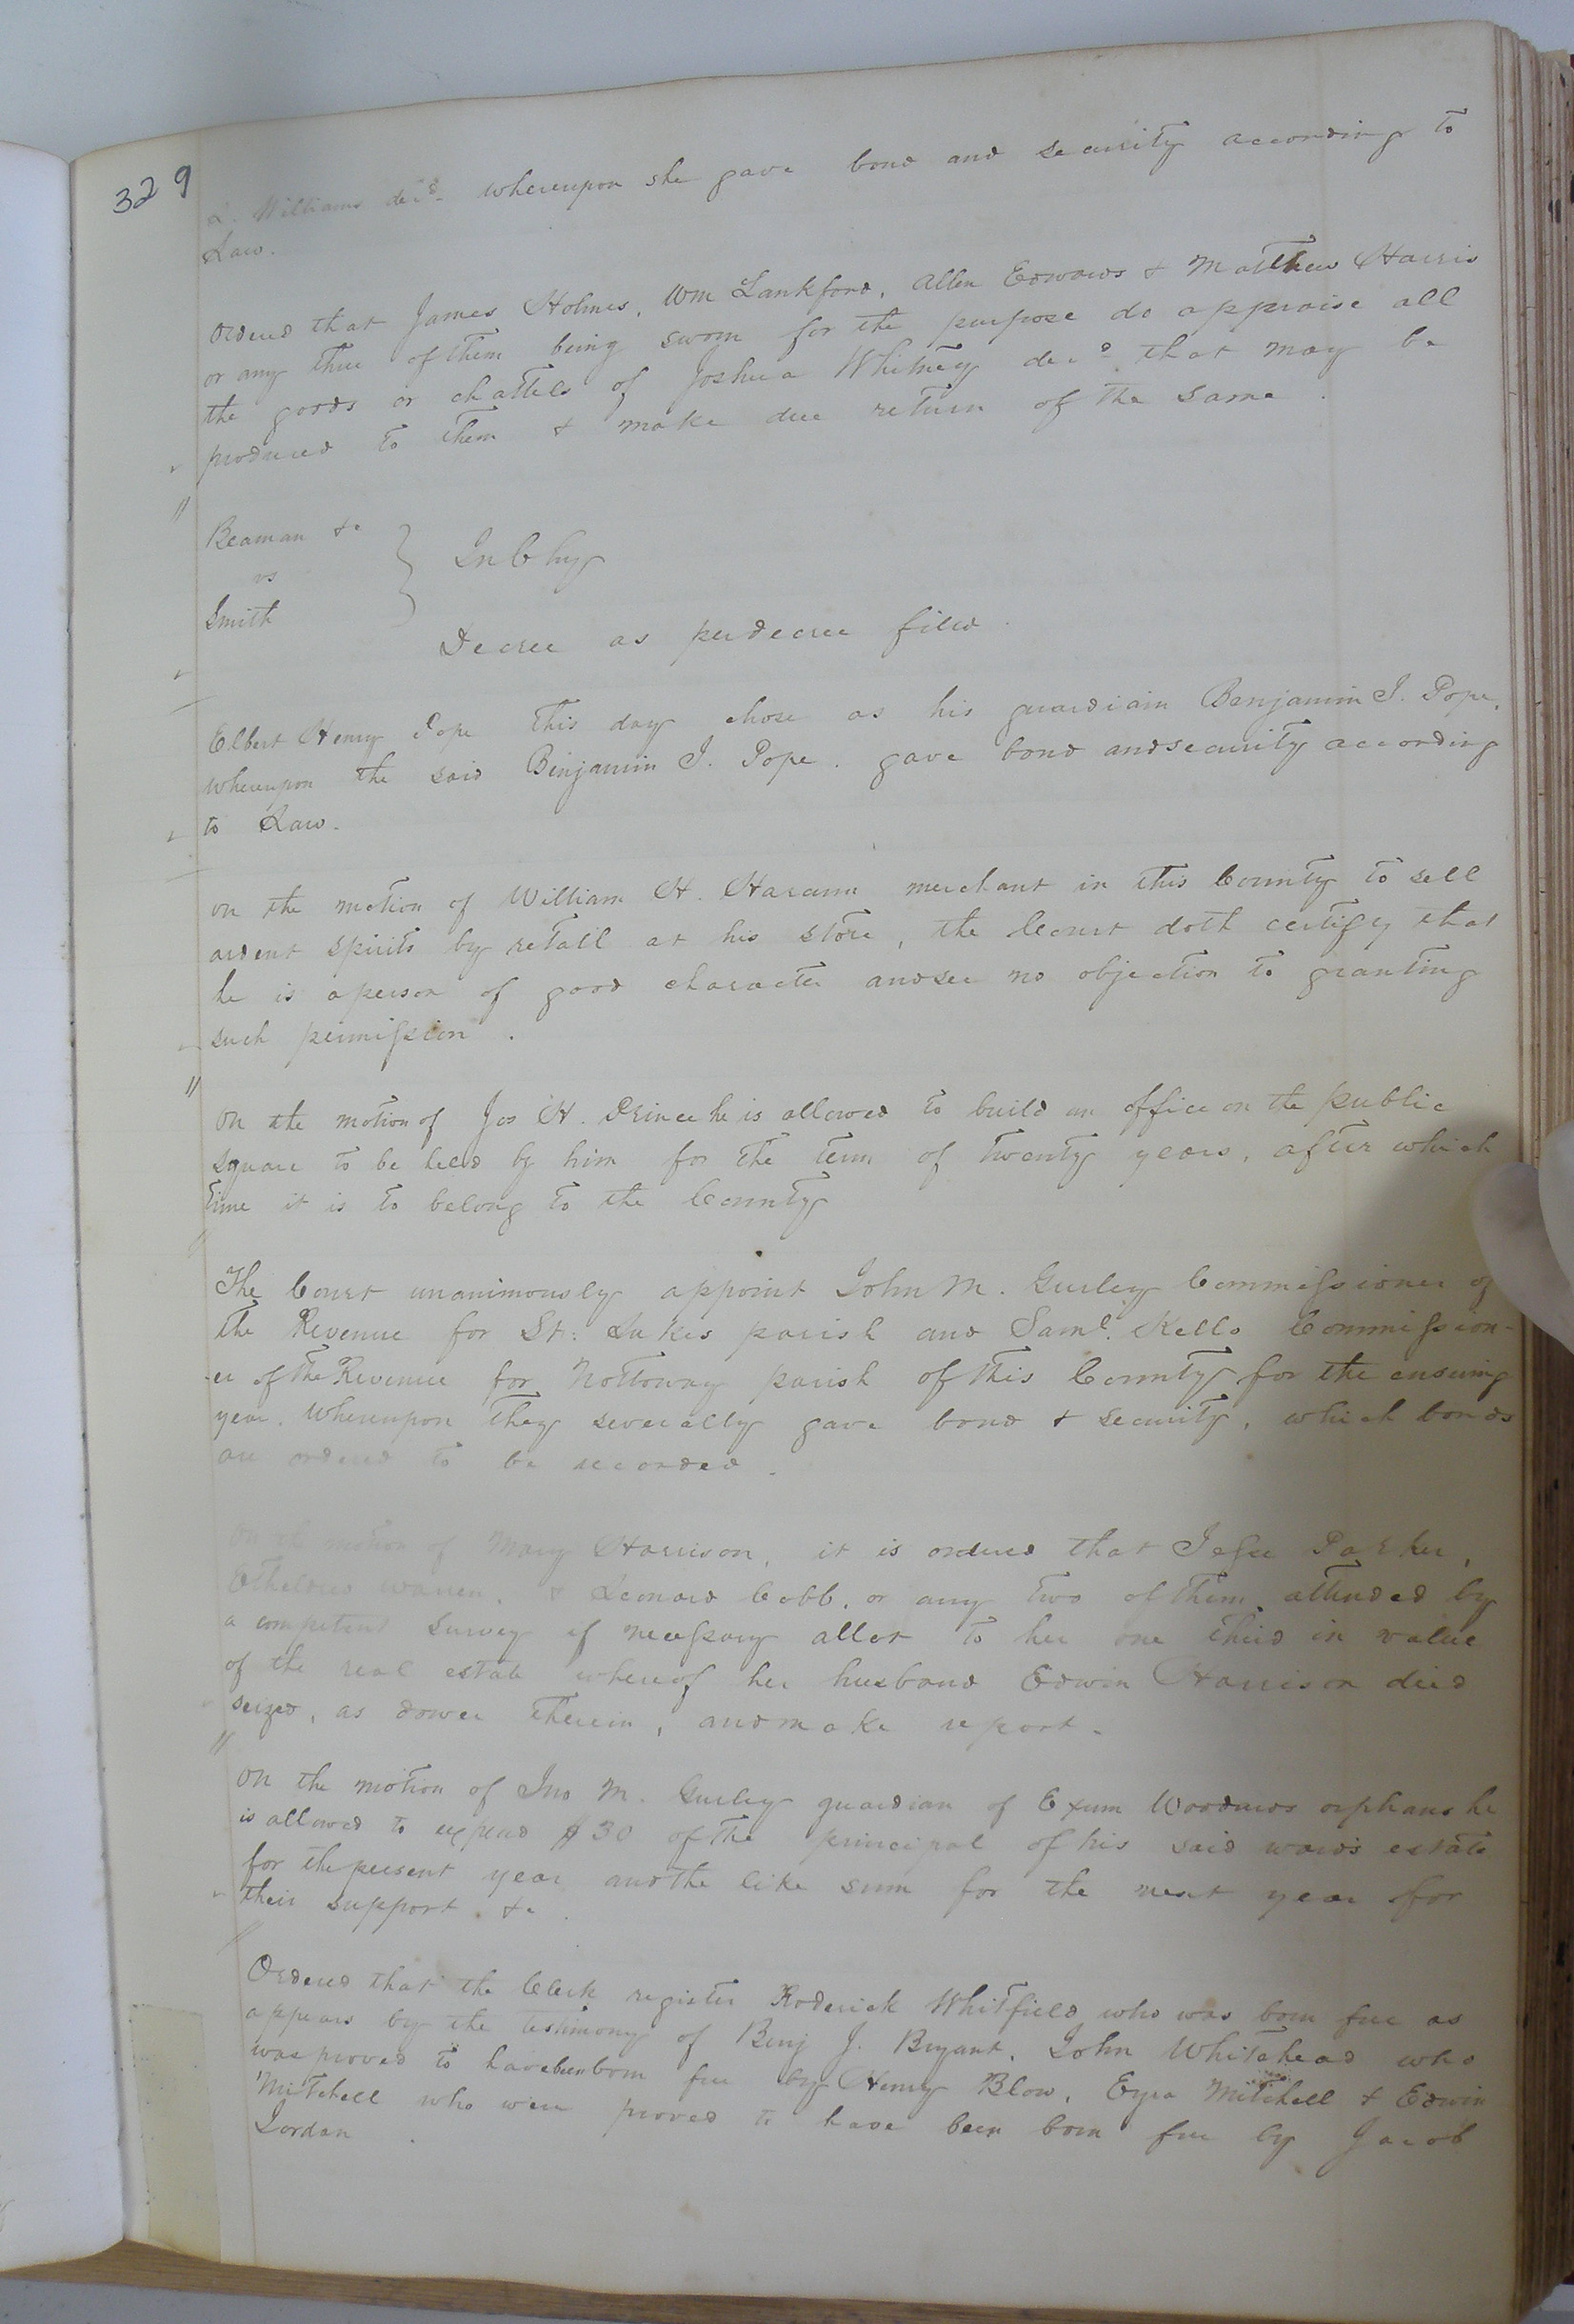 329
L. Williams dec.d whereupon she gave bond and security according to
Law.
Ordered that James Holmes, Wm Lankford, Allen Edwards & Matthew Harris
or any three of them being sworn for the purpose do appraise all
the goods or chattels of Joshua Whitney dec.d that may be
produced to them & make due return of the same.
Beaman &c
vs
Smith
In Chy
Decree as per decree filed.
Elbert Henry Pope this day chose as his guardiain Benjamin J. Pope,
whereupon the said Benjamin J. Pope. gave bond and security according
to Law.
on the motion of William H. merchant in this County to sell
ardent spirits by retail at his store, the Court doth certify that
he is a person of good character and see no objection to granting
such permission.
On the motion of Jos H. Prince he is allowed to build an office on the public
square to be held by him for the term of twenty years, after which
time it is to belong to the County
The Court unanimously appoint John M. Gurley Commissioner of
the Revenue for St: Lukes parish and Saml. Kello Commission-
-er of the Revenue for Nottoway parish of this County for the ensuing
year. Whereupon they severally gave bond & security, which bonds
are ordered to be recorded.
On the motion of Mary Harrison, it is ordered that Jesse Parker,
Etheldred Warren, & Leonard Cobb, or any two of them, attended by
a competent survey if necessary allot to her one third in value
of the real estate whereof her husband Edwin Harrison died
seized, as dower therein, and make report.
On the motion of Jno M. Gurley guardian of Exum Woodards orphans he
is allowed to expend $30 of the principal of his said wards estate
for the present year and the like sum for the next year for
their support &c.
Ordered that the Clerk register Roderick Whitfield who was born free as
appears by the testimony of Benj J. Bryant, John Whitehead who
was proved to have been born free by Henry Blow, Ezra Mitchell & Edwin
Mitchell who were proved to have been born free by Jacob
Jordan.